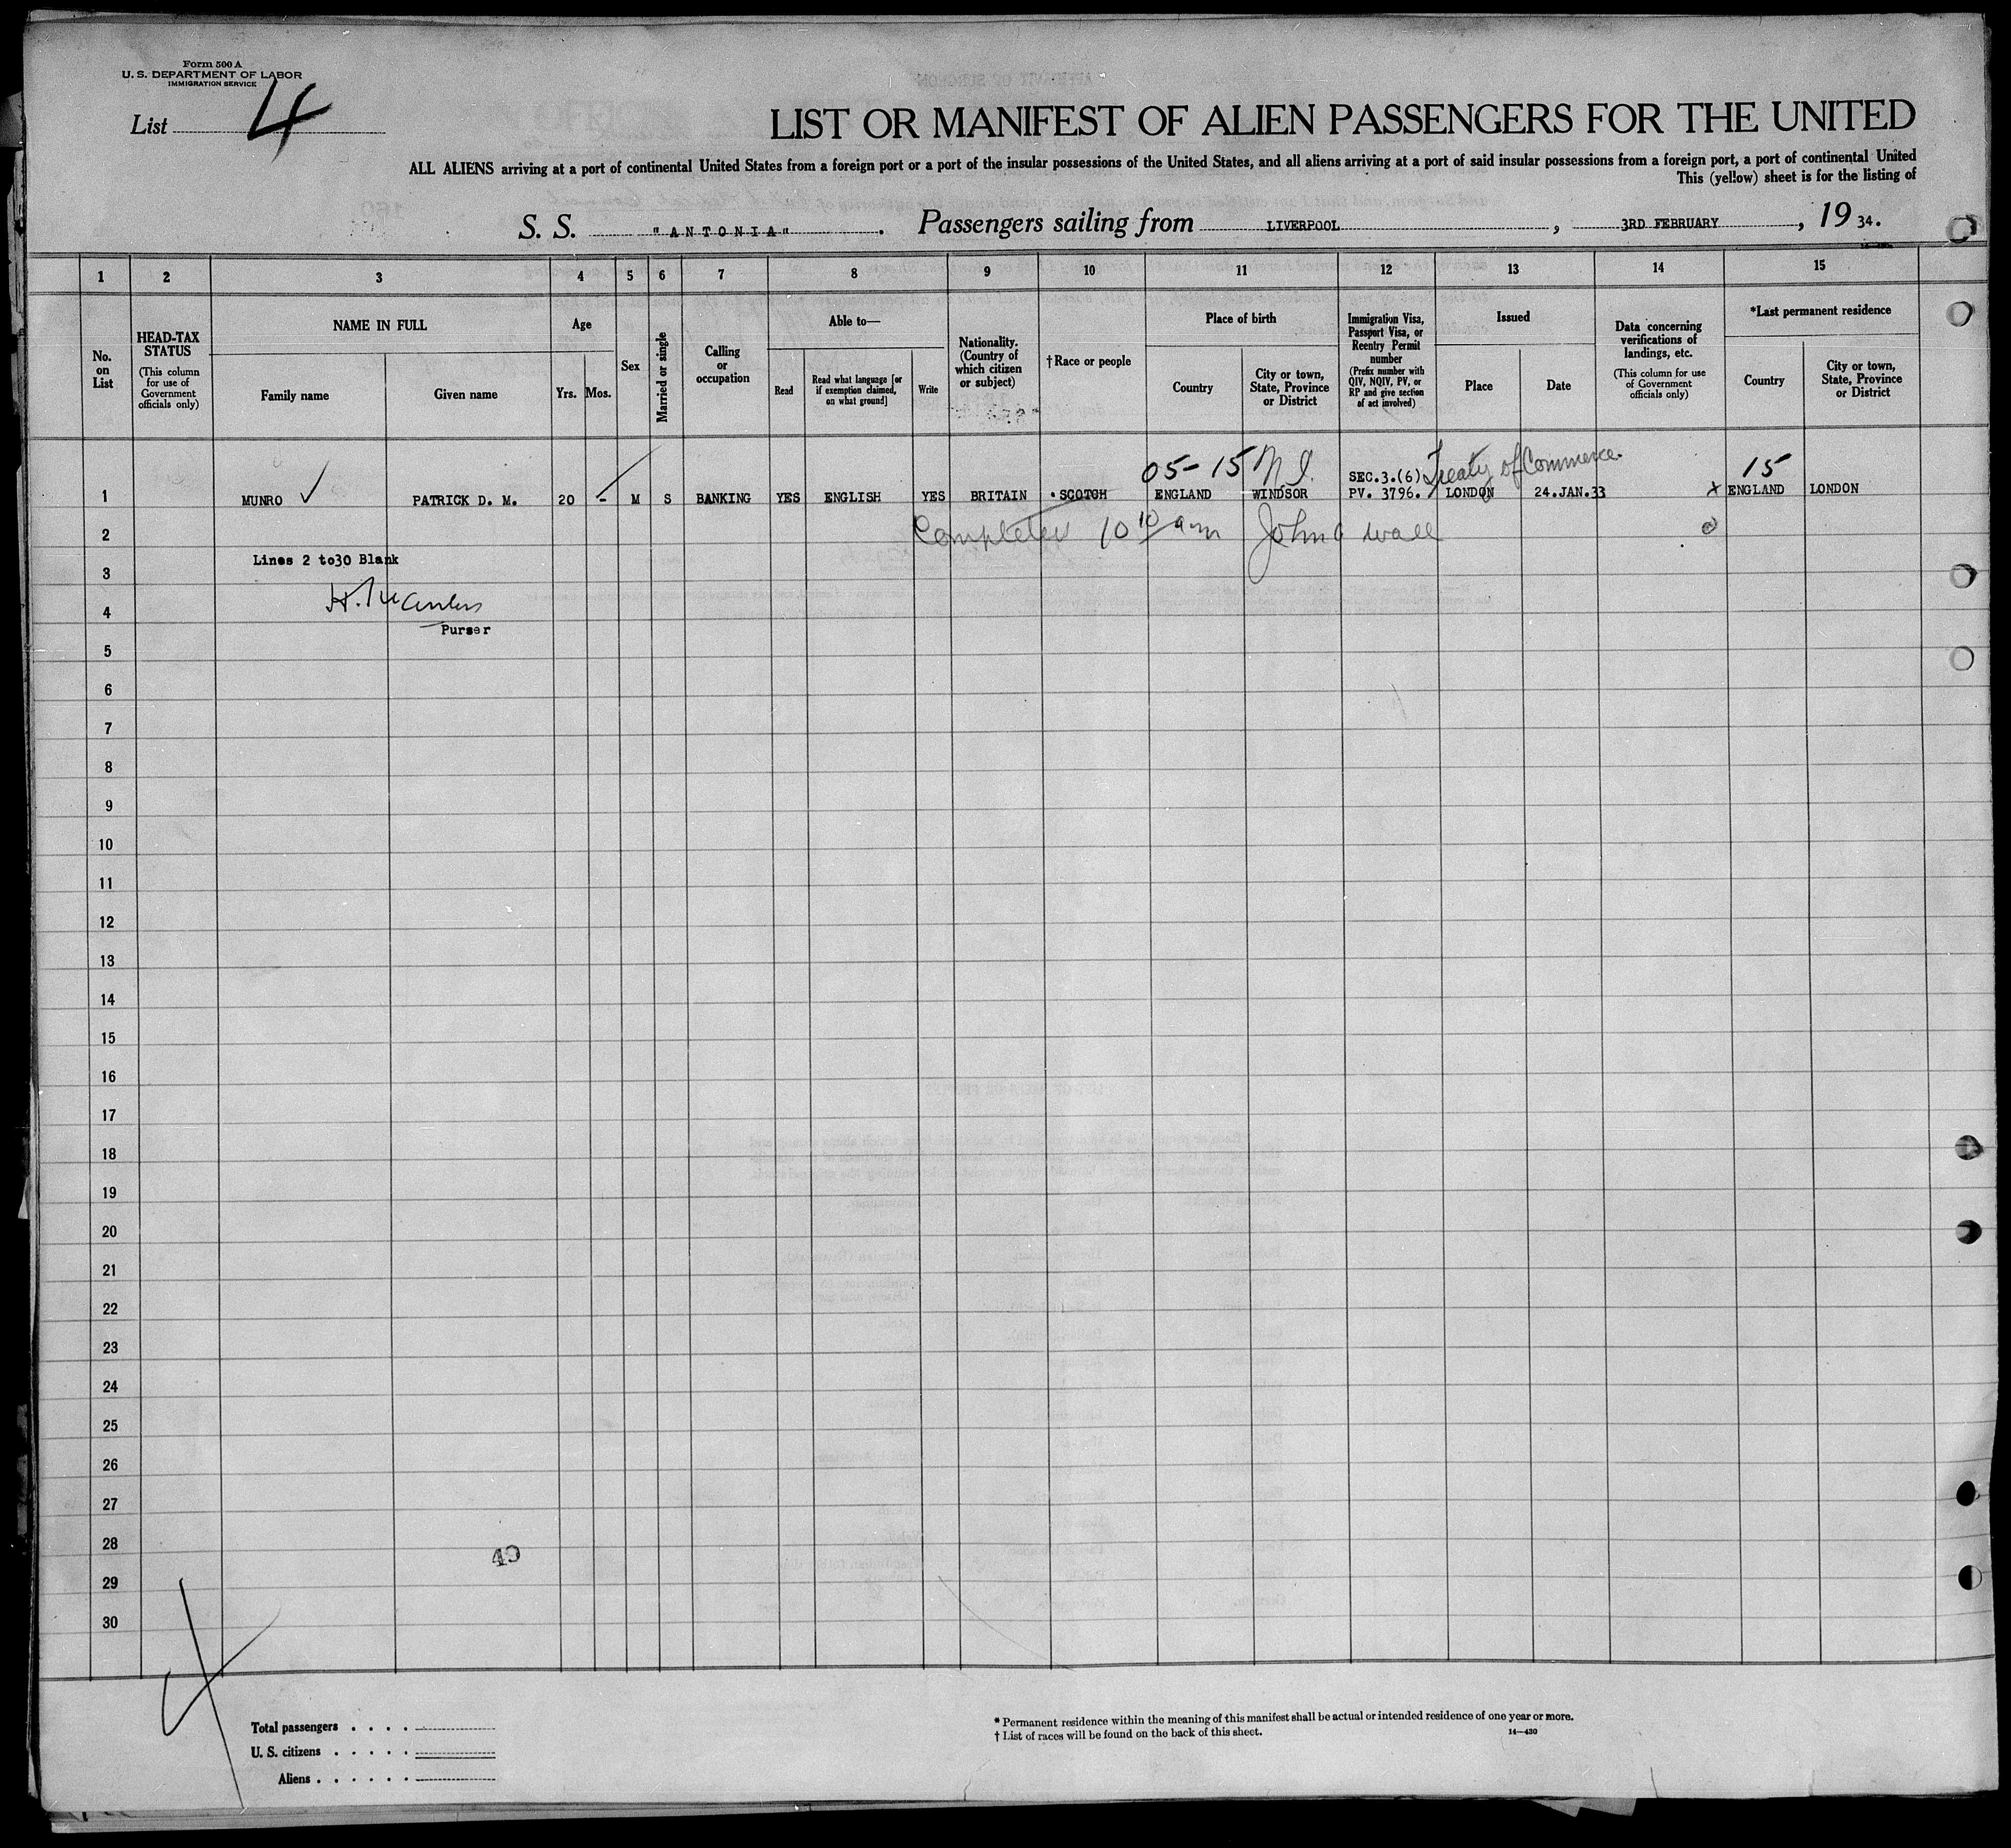 Form 500 A
U. S. DEPARTMENT OF LABOR
IMMIGRATION SERVICE
List 4
LIST OR MANIFEST OF ALIEN PASSENGERS FOR THE UNITED
ALL ALIENS arriving at a port of continental United States from a foreign port or a port of the insular possessions of the United States, and all aliens arriving at a port of said insular possessions from a foreign port, a port of continental United
This (yellow) sheet is for the listing of
S. S. "ANTONIA". Passengers sailing from LIVERPOOL, 3RD FEBRUARY, 1934.
1 2 3 4 5 6 7 8 9 10 11 12 13 14 15
No. on List
HEAD-TAX STATUS
(This column for use of Government officials only)
NAME IN FULL
Family name
Given name
Age
Yrs.
Mos.
Sex
Married or single
Calling or occupation
Able to—
Read
Read what language [or if exemption claimed, on what ground]
Write
Nationality. (Country of which citizen or subject)
†Race or people
Place of birth
Country
City or town, State, Province or District
Immigration Visa, Passport Visa, or Reentry Permit number
(Prefix number with QIV, NQIV, PV, or RP and give section of act involved)
Issued
Place
Date
Data concerning verifications of landings, etc.
(This column for use of Government officials only)
*Last permanent residence
Country
City or town, State, Province or District
05-15 N.I. SEC.3.(6) Treaty of Commerce. 15
1 MUNRO ✓ PATRICK D. M. 20 - M S BANKING YES ENGLISH YES BRITAIN SCOTCH ENGLAND WINDSOR PV. 3796. LONDON 24.JAN.33 x ENGLAND LONDON
2 Completed 10 10 am John wall
Lines 2 to30 Blank
3
H.
4
Purser
5
6
7
8
9
10
11
12
13
14
15
16
17
18
19
20
21
22
23
24
25
26
27
28 49
29
30
4
Total passengers . . . .
U. S. citizens . . . . .
Aliens . . . . . .
* Permanent residence within the meaning of this manifest shall be actual or intended residence of one year or more.
† List of races will be found on the back of this sheet. 14—430